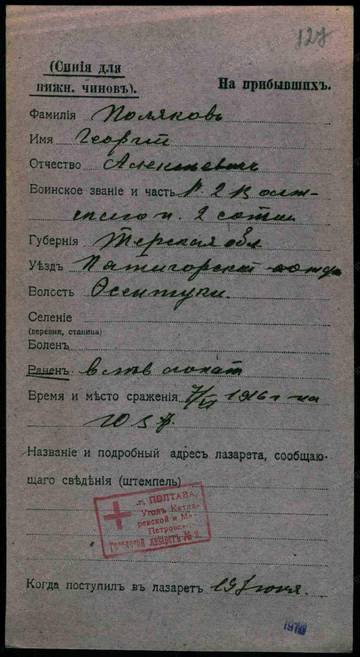 127
(Синія для
нижн. чиновъ).
На прибывшихъ.
Фамилія Поляковъ
Имя Георгій
Отчество Алексѣевичъ
Воинское званіе и часть К. 2 Волж-
скаго п. 2 сотни
Губернія Терская обл
Уѣздъ Пятигорскій отдѣ
Волость Эсентуки.
Селеніе
(деревня, станица)
Боленъ
Раненъ в лѣв лопат
Время и мѣсто сраженія 7/VI 1916 г на
Ю З ф.
Названіе и подробный адресъ лазарета, сообщаю-
щаго свѣдѣнія (штемпель)
г. ПОЛТАВА,
Уголъ Катери-
Петровс
Когда поступилъ въ лазаретъ 19 Іюня.